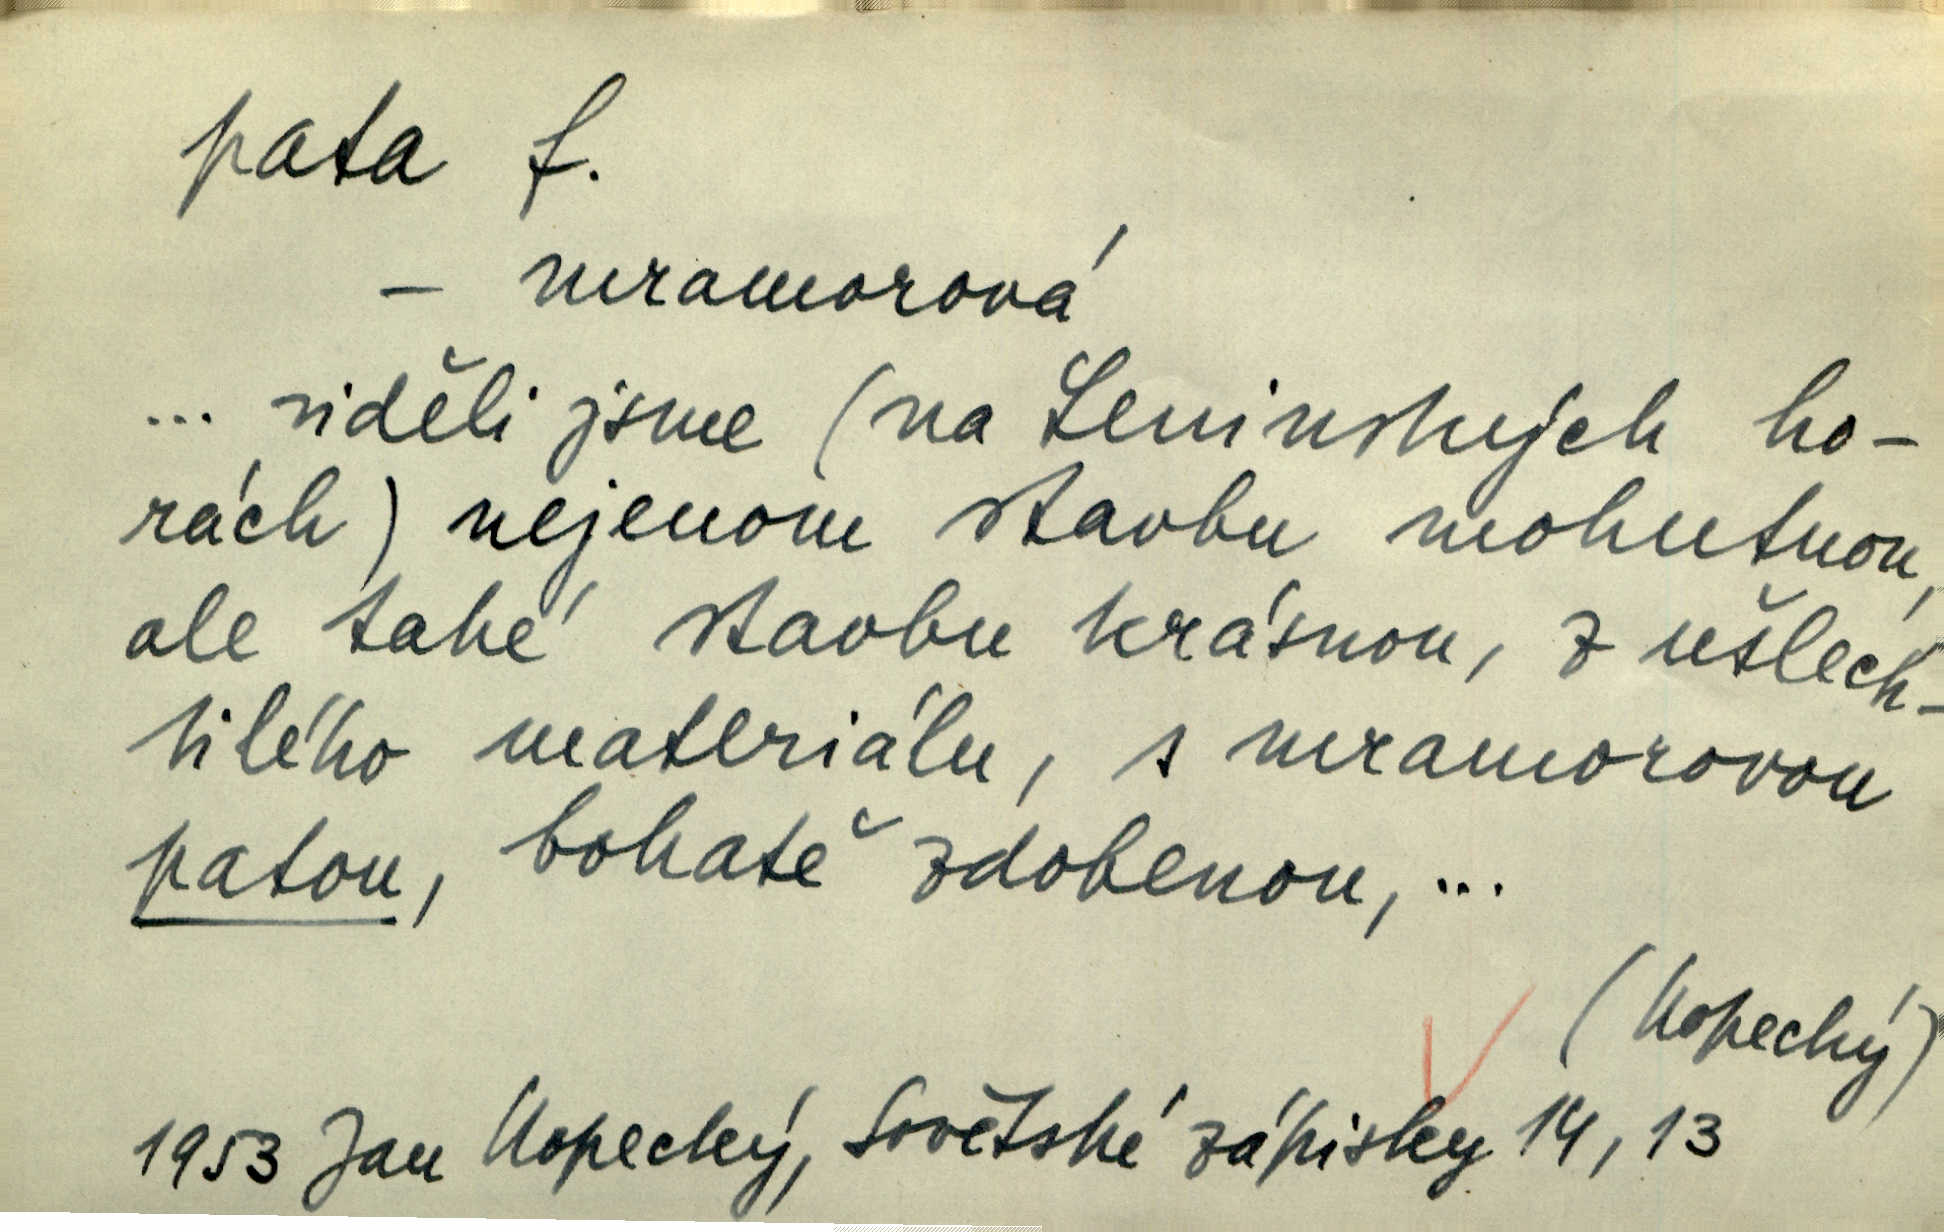 pata f.
– mramorová
... viděli jsme (na Leninských ho-
rách) nejenom stavbu mohutnou,
ale také stavbu krásnou, z ušlech-
tilého materiálu, s mramorovou
patou, bohatě zdobenou, ...
(Kopecký)
1953 Jan Kopecký, Sovětské zápisky 14, 13